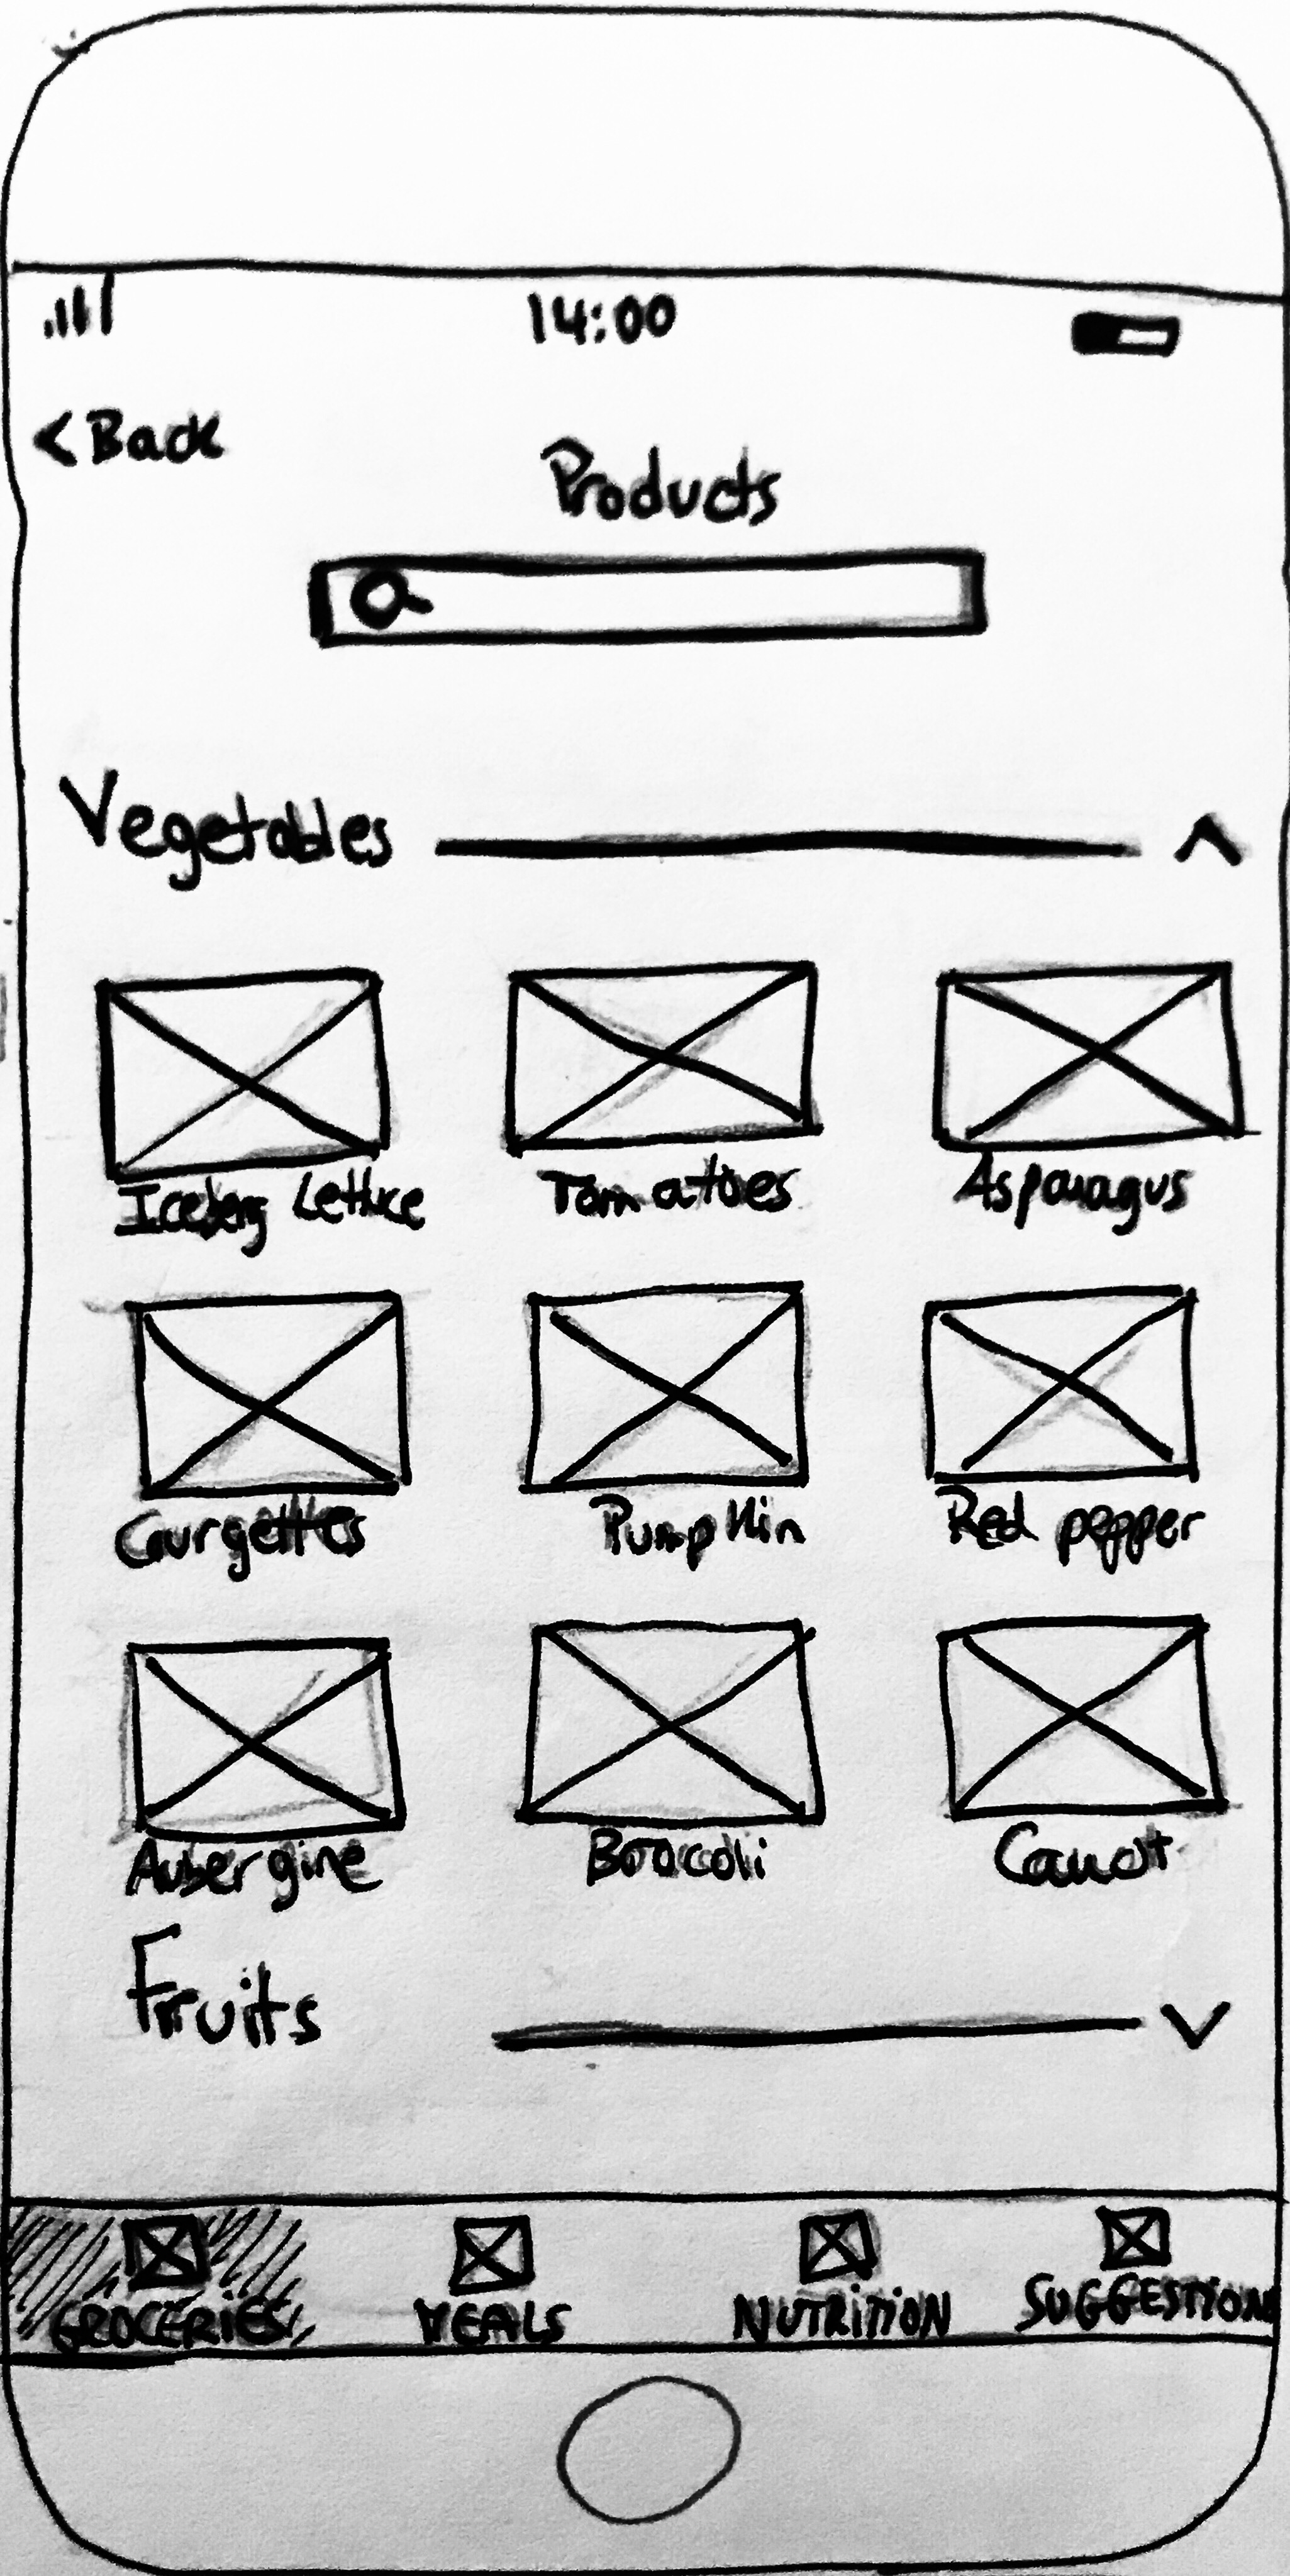 14:00
< Back
Products
Vegetables
Iceberg Lettuce Tomatoes Asparagus
Courgettes Pumpkin Red pepper
Aubergine Broccoli Carrot
Fruits
GROCERIES MEALS NUTRITION SUGGESTION